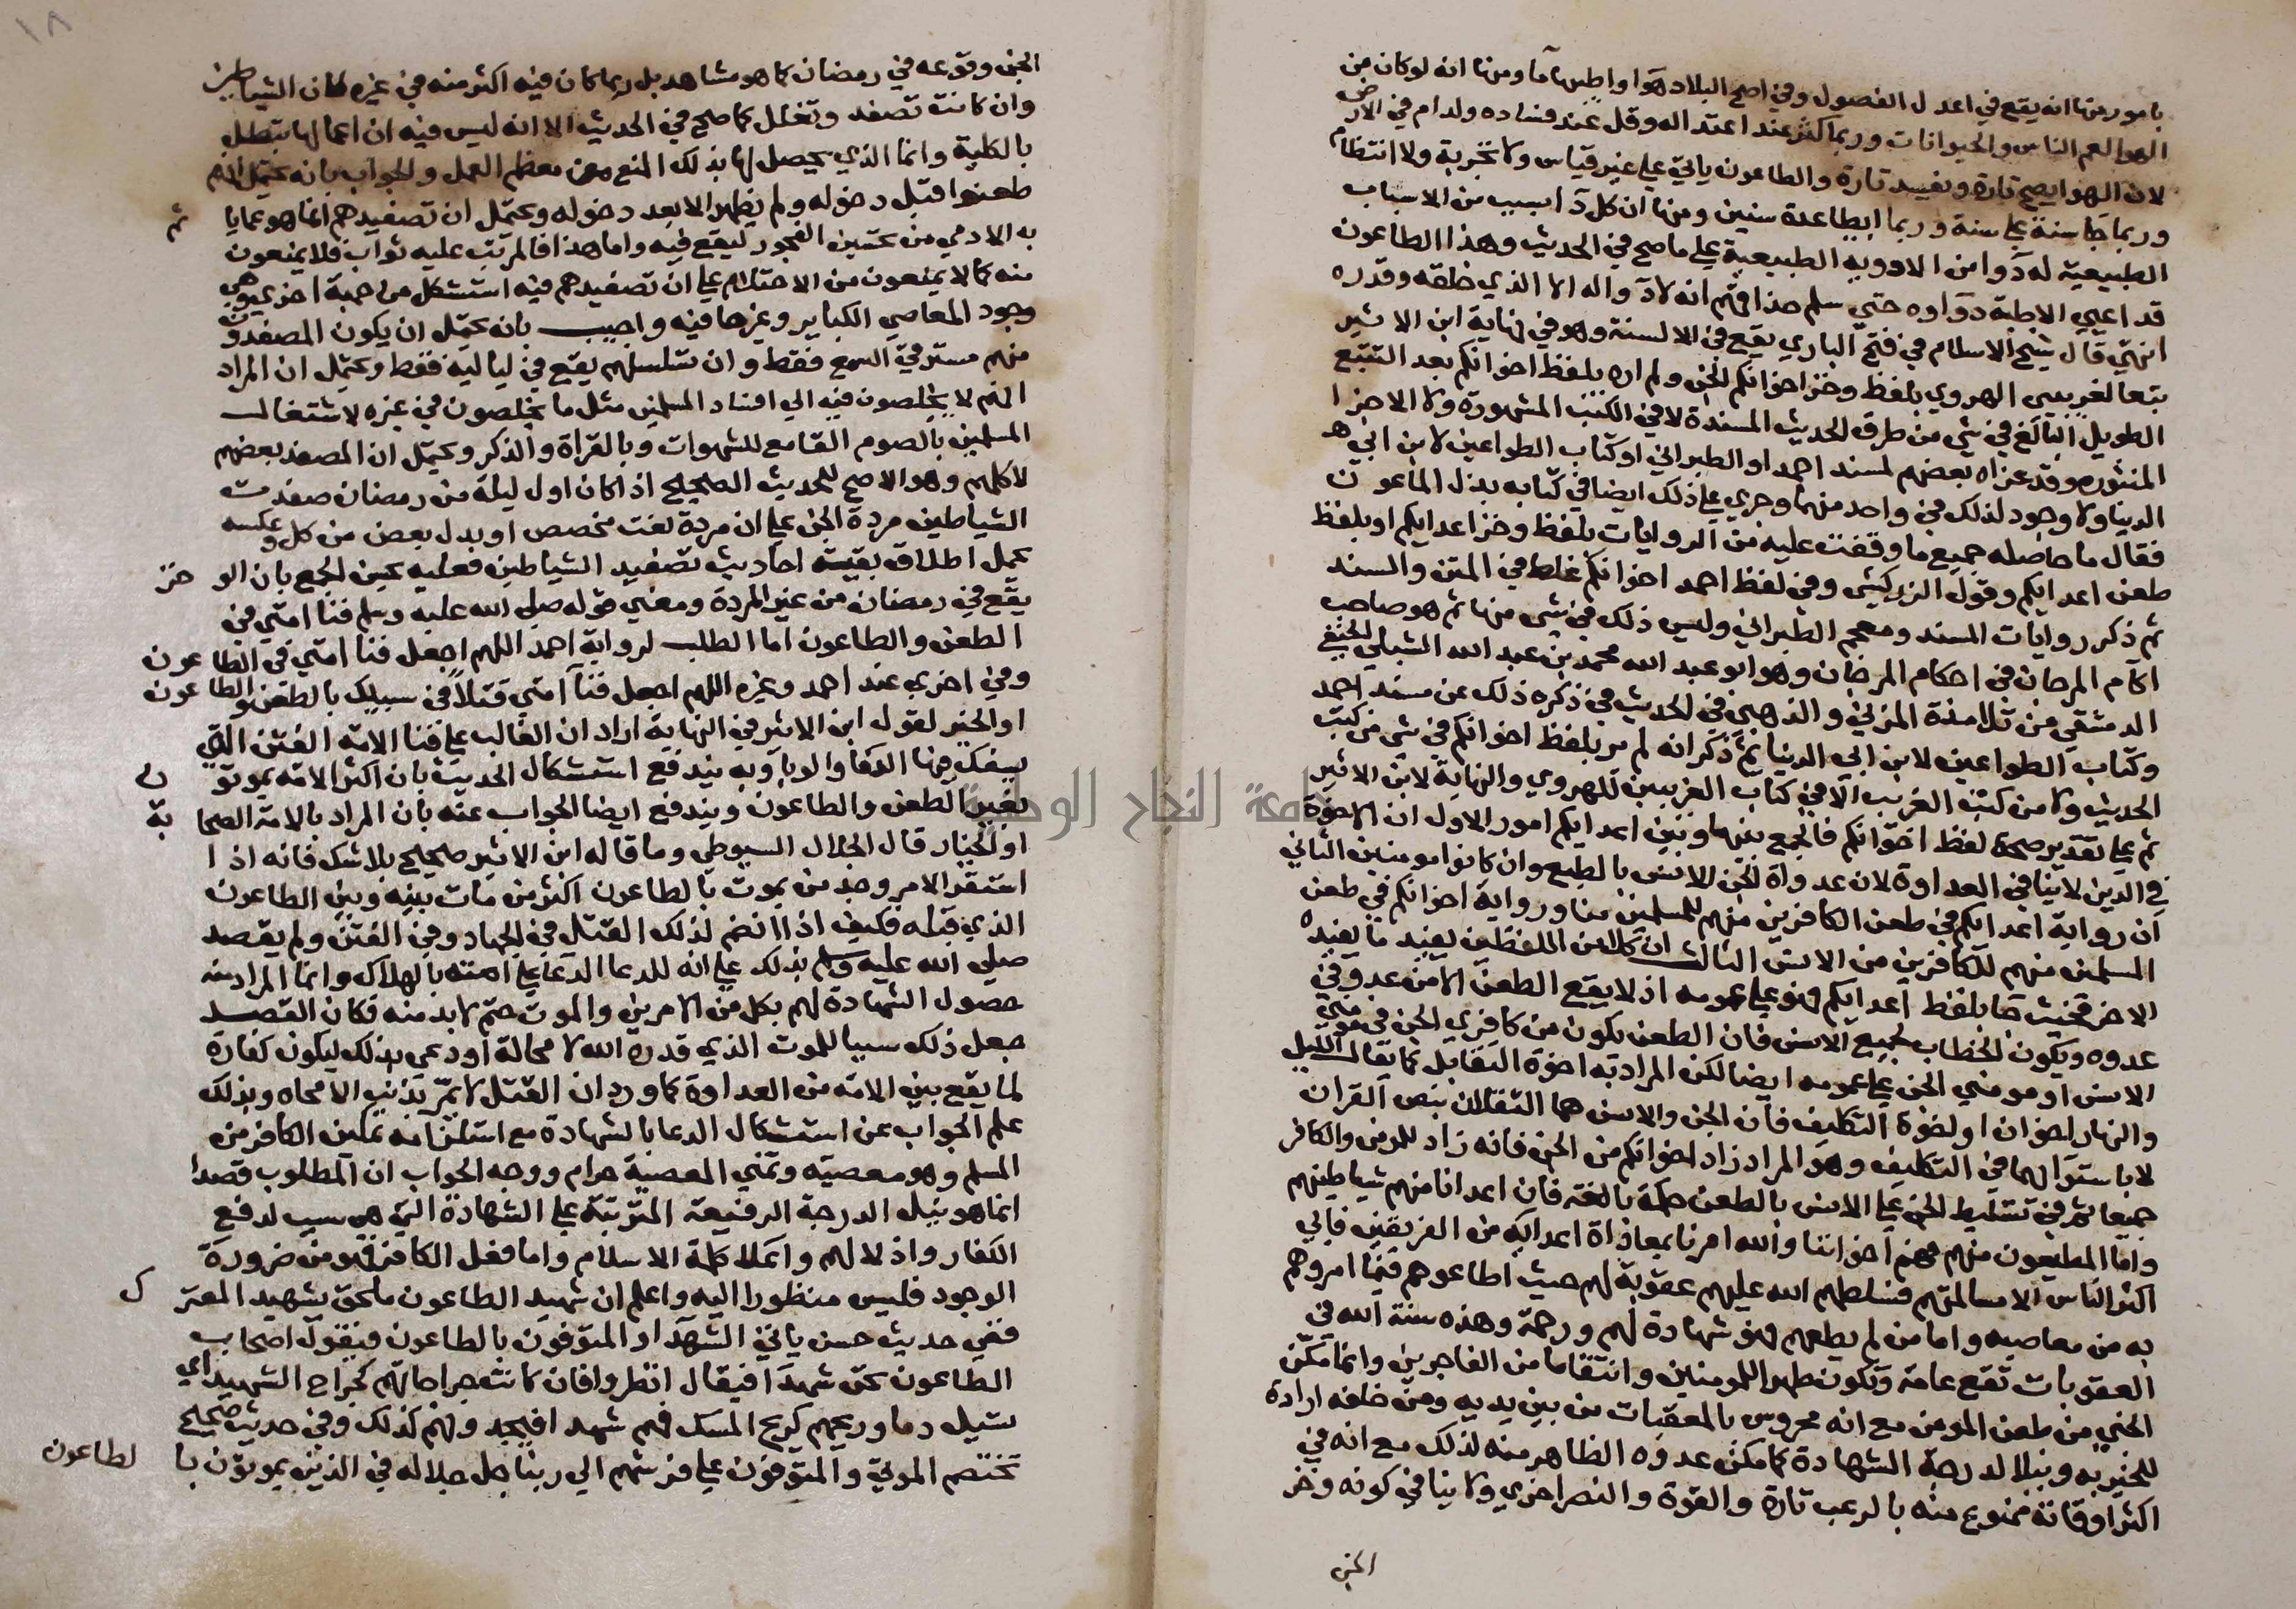 بامور منها انه يقع في اعدل الفصول وفي اصح البلاد هوا واطيبها ما ومنها انه لو كان من
الهوا لعم الناس والحيوانات وربما كثر عند اعتداله وقل عند فساده ولدام في الارض
لان الهوا يصح تارة ويفسد تارة والطاعون ياتي علي غير قياس ولا تجربة ولا انتظام
وربما جا سنة علي سنة وربما ابطا عدة سنين ومنها ان كل دا بسبب من الاسباب
الطبيعية له دوا من الادويه الطبيعية علي ما صح في الحديث وهذا الطاعون
قد اعيي الاطبة دواوه حتي سلم حذاقهم انه لا دوا له الا الذي خلقه وقدره
انتهي قال شيخ الاسلام في فتح الباري يقع في الالسنة وهو في نهاية ابن الاثير
تبعا لغريبي الهروي بلفظ وخز اخوانكم الجن ولم اره بلفظ اخوانكم بعد التتبع
الطويل البالغ في شي من طرق الحديث المسندة لا في الكتب المشهورة ولا الاجزا
المنثوره وقد عزاه بعضهم لمسند احمد او الطبراني او كتاب الطواعين لابن ابي
الدنيا ولا وجود لذلك في واحد منها وجري علي ذلك ايضا في كتابه بذل الماعون
فقال ما حاصله جميع ما وقفت عليه من الروايات بلفظ وخز اعدايكم او بلفظ
طعن اعدايكم وقول الزركشي وفي لفظ احمد اخوانكم غلط في المتن والسند
ثم ذكر روايات المسند ومعجم الطبراني وليس ذلك في شي منها ثم هو صاحب
اكام المرجان في احكام المرجان وهو ابو عبد الله محمد بن عبد الله الشبلي الحنفي
الدمشقي من تلامذة المزني والذهبي في الحديث في ذكره ذلك عن مسند احمد
وكتاب الطواعين لابن ابي الدنيا ثم ذكر انه لم ير بلفظ اخوانكم في شي من كتب
الحديث ولا من كتب الغريب الا في كتاب الغريبين للهروي والنهاية لابن الاثير
ثم علي تقدير صحة لفظ اخوانكم فالجمع بينها وبين اعدايكم امور الاول ان الاخوة
في الدين لا ينافي العداوة لان عداوة الجن للانس بالطبع وان كانوا مومنين الثاني
ان رواية اعدايكم في طعن الكافرين منهم للمسلمين منا ورواية اخوانكم في طعن
المسلمين منهم للكافرين من الانس الثالث ان كلا من اللفظين يفيد ما يفيده
الاخر فحيث جا بلفظ اعدايكم فهو علي عمومه اذ لا يقع الطعن الا من عدو في
عدوه ويكون الخطاب لجميع الانس فان الطعن يكون من كافري الجن في مومني
الانس او مومني الجن علي عمومه ايضا لكن المراد به اخوة التقابل كما يقال الليل
والنهار اخوان او اخوة التكليف فان الجن والانس هما الثقلان بنص القران
لاباستوا لهما في التكليف وهو المراد زاد اخوانكم من الجن فانه زاد للمومن والكافر
جميعا ثم في تسليط الجن علي الانس بالطعن حكمة بالغة فان اعدانا منهم شياطينهم
واما المطيعون منهم فهم اخواننا والله امرنا بمعاداة اعدايه من الفريقين فابي
اكثر الناس الا مسالمتهم فسلطهم الله عليهم عقوبة لهم حيث اطاعوهم فيما امروهم
به من معاصيه واما من لم يطعهم فهو شهادة لهم ورحمة وهذه سنة الله في
العقوبات تقع عامة وتكون طهرا للمومنين وانتقاما من الفاجرين وانما مكن
الجني من طعن المومن مع انه محروس بالمعقبات من بين يديه ومن خلفه ارادة
للخير به ونيلا لدرجة الشهادة كما مكن عدوه الظاهر منه لذلك مع انه في
اكثر اوقاته ممنوع منه بالرعب تارة والقوة والنصر اخري ولا ينافي كونه وخز
الجن
١٨
الجن وقوعه في رمضان كما هو مشاهد بل ربما كان فيه اكثر منه في غيره لان الشياطين
وان كانت تصفد وتغلل كما صح في الحديث الا انه ليس فيه ان اعمالها تبطل
بالكلية وانما الذي يحصل لها بذلك المنع من معظم العمل والجواب بانه يحتمل انهم
طعنوا قبل دخوله ولم يظهر الا بعد دخوله ويحتمل ان تصفيدهم انما هو عما ياثم
به الادمي من تحسين الفجور ليقع فيه واما هذا فالمرتب عليه ثواب فلا يمنعون
منه كما لا يمنعون من الاحتلام علي ان تصفيدهم فيه استشكل من جهة اخري وهي
وجود المعاصي الكباير وغيرها فيه واجيب بانه يحتمل ان يكون المصفدون
منهم مسترقي السمع فقط وان تسلسلهم يقع في لياليه فقط ويحتمل ان المراد
انهم لا يخلصون فيه الي افساد المسلمين مثل ما يخلصون في غيره لاشتغال
المسلمين بالصوم القامع للشهوات وبالقراة والذكر ويحتمل ان المصفد بعضهم
لا كلهم وهو الاصح للحديث الصحيح اذا كان اول ليلة من رمضان صفدت
الشياطين مردة الجن علي ان مردة نعت مخصص او بدل بعض من كل وعكسه
يحمل اطلاق بقية احاديث تصفيد الشياطين فعليه يحسن الجمع بان الوخز
يقع في رمضان من غير المردة ومعني قوله صلي الله عليه وسلم فنا امتي في
الطعن والطاعون اما الطلب لرواية احمد اللهم اجعل فنا امتي في الطاعون
وفي اخري عند احمد وغيره اللهم اجعل فنا امتي قتلا في سبيلك بالطعن والطاعون
او الخبر لقول ابن الاثير في النهاية اراد ان الغالب علي فنا الامة الفتن التي
يسفك فيها الدما والوبا وبه يندفع استشكال الحديث بان اكثر الامة يموتون
بغير الطعن والطاعون ويندفع ايضا الجواب عنه بان المراد بالامة الصحابة
او الخيار قال الجلال السيوطي وما قاله ابن الاثير صحيح بلا شك فانه اذا
استقرا الامر وجد من يموت بالطاعون اكثر من مات بينه وبين الطاعون
الذي قبله فكيف اذا انضم لذلك القتل في الجهاد وفي الفتن ولم يقصد
صلي الله عليه وسلم بذلك علي انه للدعا الدعا علي امته بالهلاك وانما المراد منه
حصول الشهادة لهم بكل من الامرين والموت حتم لا بد منه فكان القصد
جعل ذلك سببا للموت الذي قدره الله لا محالة او دعي بذلك ليكون كفارة
لما يقع بين الامة من العداوة كما ورد ان القتل لا يمر بذنب الا محاه وبذلك
علم الجواب عن استشكال الدعا بالشهادة مع استلزامه تمكين الكافر من
المسلم وهو معصيه وتمني المعصية حرام ووجه الجواب ان المطلوب قصدا
انما هو نيل الدرجة الرفيعة المترتبة علي الشهادة التي هي سبب لدفع
الكفار واذلالهم واعلا كلمة الاسلام واما فعل الكافر فهو من ضرورة
الوجود فليس منظورا اليه واعلم ان شهيد الطاعون ملحق بشهيد المعترك
ففي حديث حسن ياتي الشهدا والمتوفون بالطاعون فيقول اصحاب
الطاعون نحن شهدا فيقال انظروا فان كانت جراحاتهم كجراح الشهيد اي
تسيل دما وريحهم كريح المسك فهم شهدا فيجدونهم كذلك وفي حديث صحيح
تختصم الموتي والمتوفون علي فرشهم الي ربنا جل جلاله في الذين يموتون بالطاعون
جامعة النجاح الوطنية